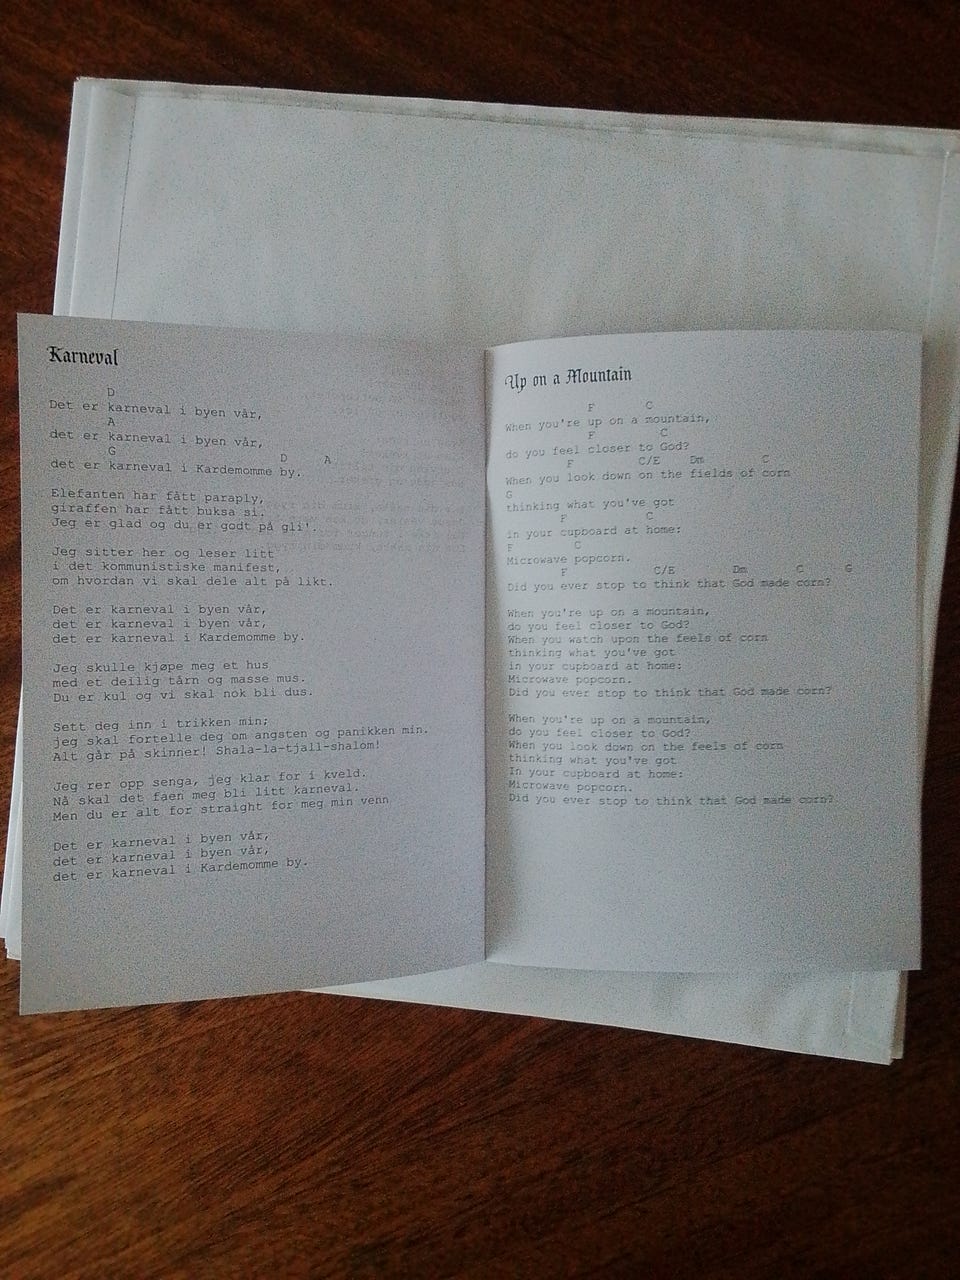 Karneval
D
Det er karneval i byen vår,
A
det er karneval i byen vår,
G D A
det er karneval i Kardemomme by.
Elefanten har fått paraply,
giraffen har fått buksa si.
Jeg er glad og du er godt på gli'.
Jeg sitter her og leser litt
i det kommunistiske manifest,
om hvordan vi skal dele alt på likt.
Det er karneval i byen vår,
det er karneval i byen vår,
det er karneval i Kardemomme by.
Jeg skulle kjøpe meg et hus
med et deilig tårn og masse mus.
Du er kul og vi skal nok bli dus.
Sett deg inn i trikken min;
jeg skal fortelle deg om angsten og panikken min.
Alt går på skinner! Shala-la-tjall-shalom!
Jeg rer opp senga, jeg klar for i kveld.
Nå skal det faen meg bli litt karneval.
Men du er alt for straight for meg min venn
Det er karneval i byen vår,
det er karneval i byen vår,
det er karneval i Kardemomme by.
Up on a Mountain
F C
When you're up on a mountain,
F C
do you feel closer to God?
F C/E Dm C
When you look down on the fields of corn
G
thinking what you've got
F C
in your cupboard at home:
F C
Microwave popcorn.
F C/E Dm C G
Did you ever stop to think that God made corn?
When you're up on a mountain,
do you feel closer to God?
When you watch upon the feels of corn
thinking what you've got
in your cupboard at home:
Microwave popcorn.
Did you ever stop to think that God made corn?
When you're up on a mountain,
do you feel closer to God?
When you look down on the feels of corn
thinking what you've got
In your cupboard at home:
Microwave popcorn.
Did you ever stop to think that God made corn?